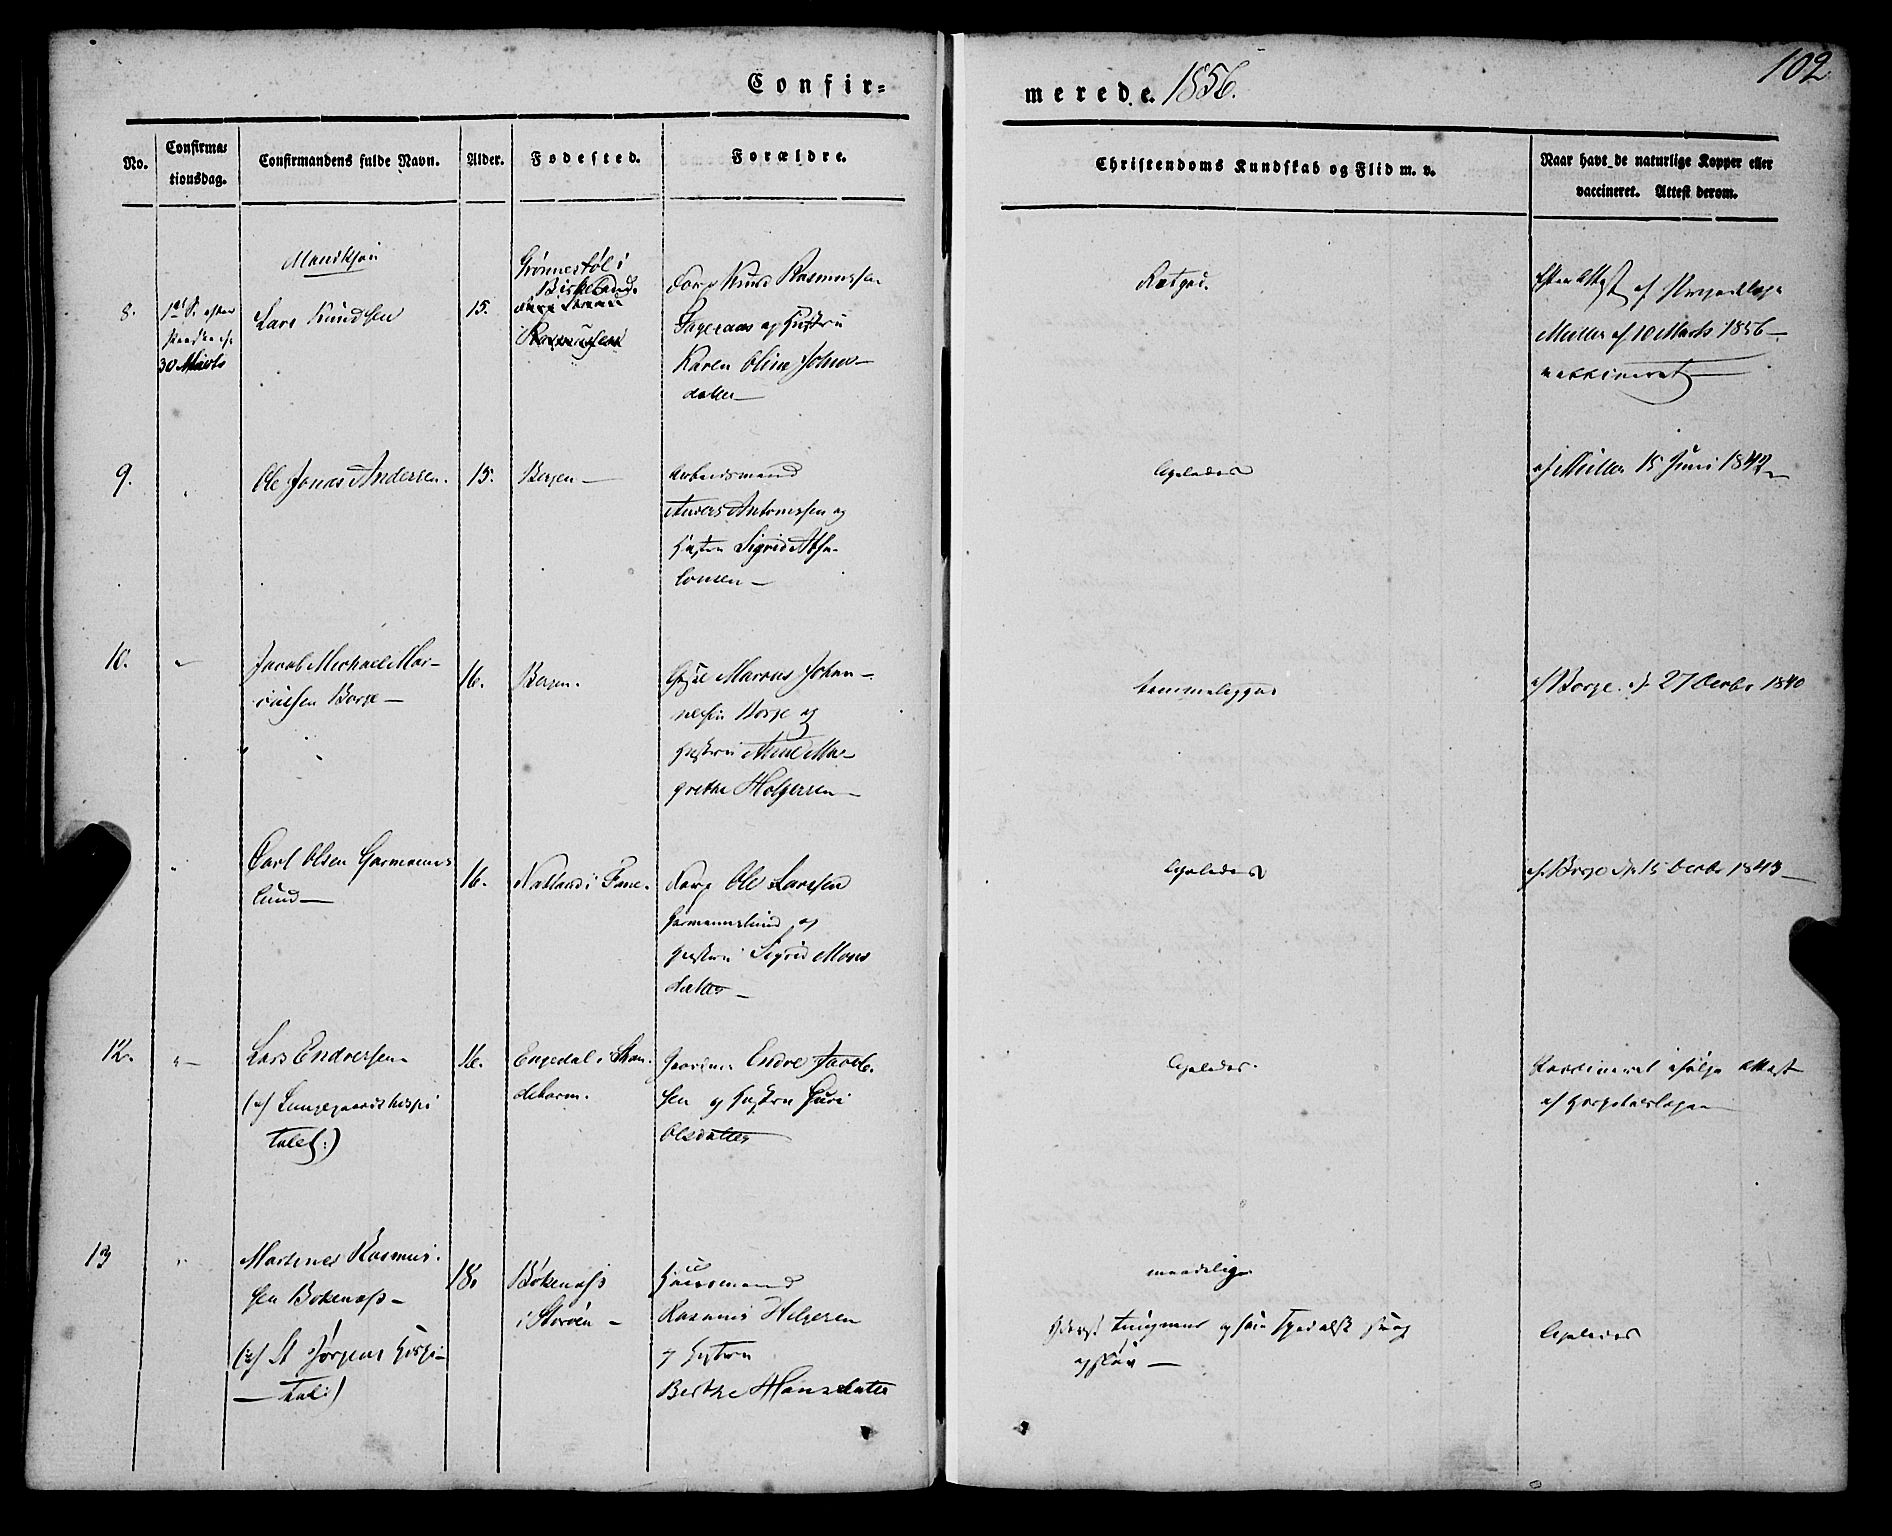 Confir=
merede. 1856.
102
No.
Confirma=
tionsdag.
Confirmandens fulde Navn.
Alder.
Fødested.
Forældre.
Christendoms Kundskab og Flid m. v.
Naar havt de naturlige Kopper eller
vaccineret. Attest derom.
Mandkjøn
8.
1ste S. efter
Paaske
30 Marts
Lars Knudsen
15.
Grønnestøl i
Birkeland
Knud Rasmussen
og Hustru
Karen Oline Johns-
datter
Attest af
Müller af 10 Marts 1856
vakkineret
9.
"
Ole Jonas Andersen.
15.
Bergen
Arbeidsmand
Anders Antonissen og
Hustru Sigrid Absa-
lonsen
Ligeledes
af Müller 15 Juni 1842
10.
"
Jacob Michael Mar-
cussen Borge
16.
Bergen.
Marcus Johan-
nessen Borge og
Hustru Anne Mar-
grethe Holgersen
af Borge. 27 Octbr 1840
"
Carl Olsen Garmanns
lund
16.
Natland i Fane.
Ole Larssen
Garmannslund og
Hustru Sigrid Mons
datter
Ligeledes
af Borge 15 Octbr 1843
12.
"
Lars Endresen
(af Lungegaardshospi
talet:)
16.
Engedal i Stran-
debarm.
Gaardm. Endre Jacob-
sen og Hustru Guri
Olsdatter
Ligeledes.
Vaccineret ifølge Attest
af Hospitalslægen
13
"
Martines Rasmus-
sen Bokenæss
(af St Jørgens Hospi-
tal:)
18.
Bokenæss
i Storøen
Huusmand
Rasmus Helgesen
og Hustru
Berthe Hansdatter
maadelig
Ligeledes